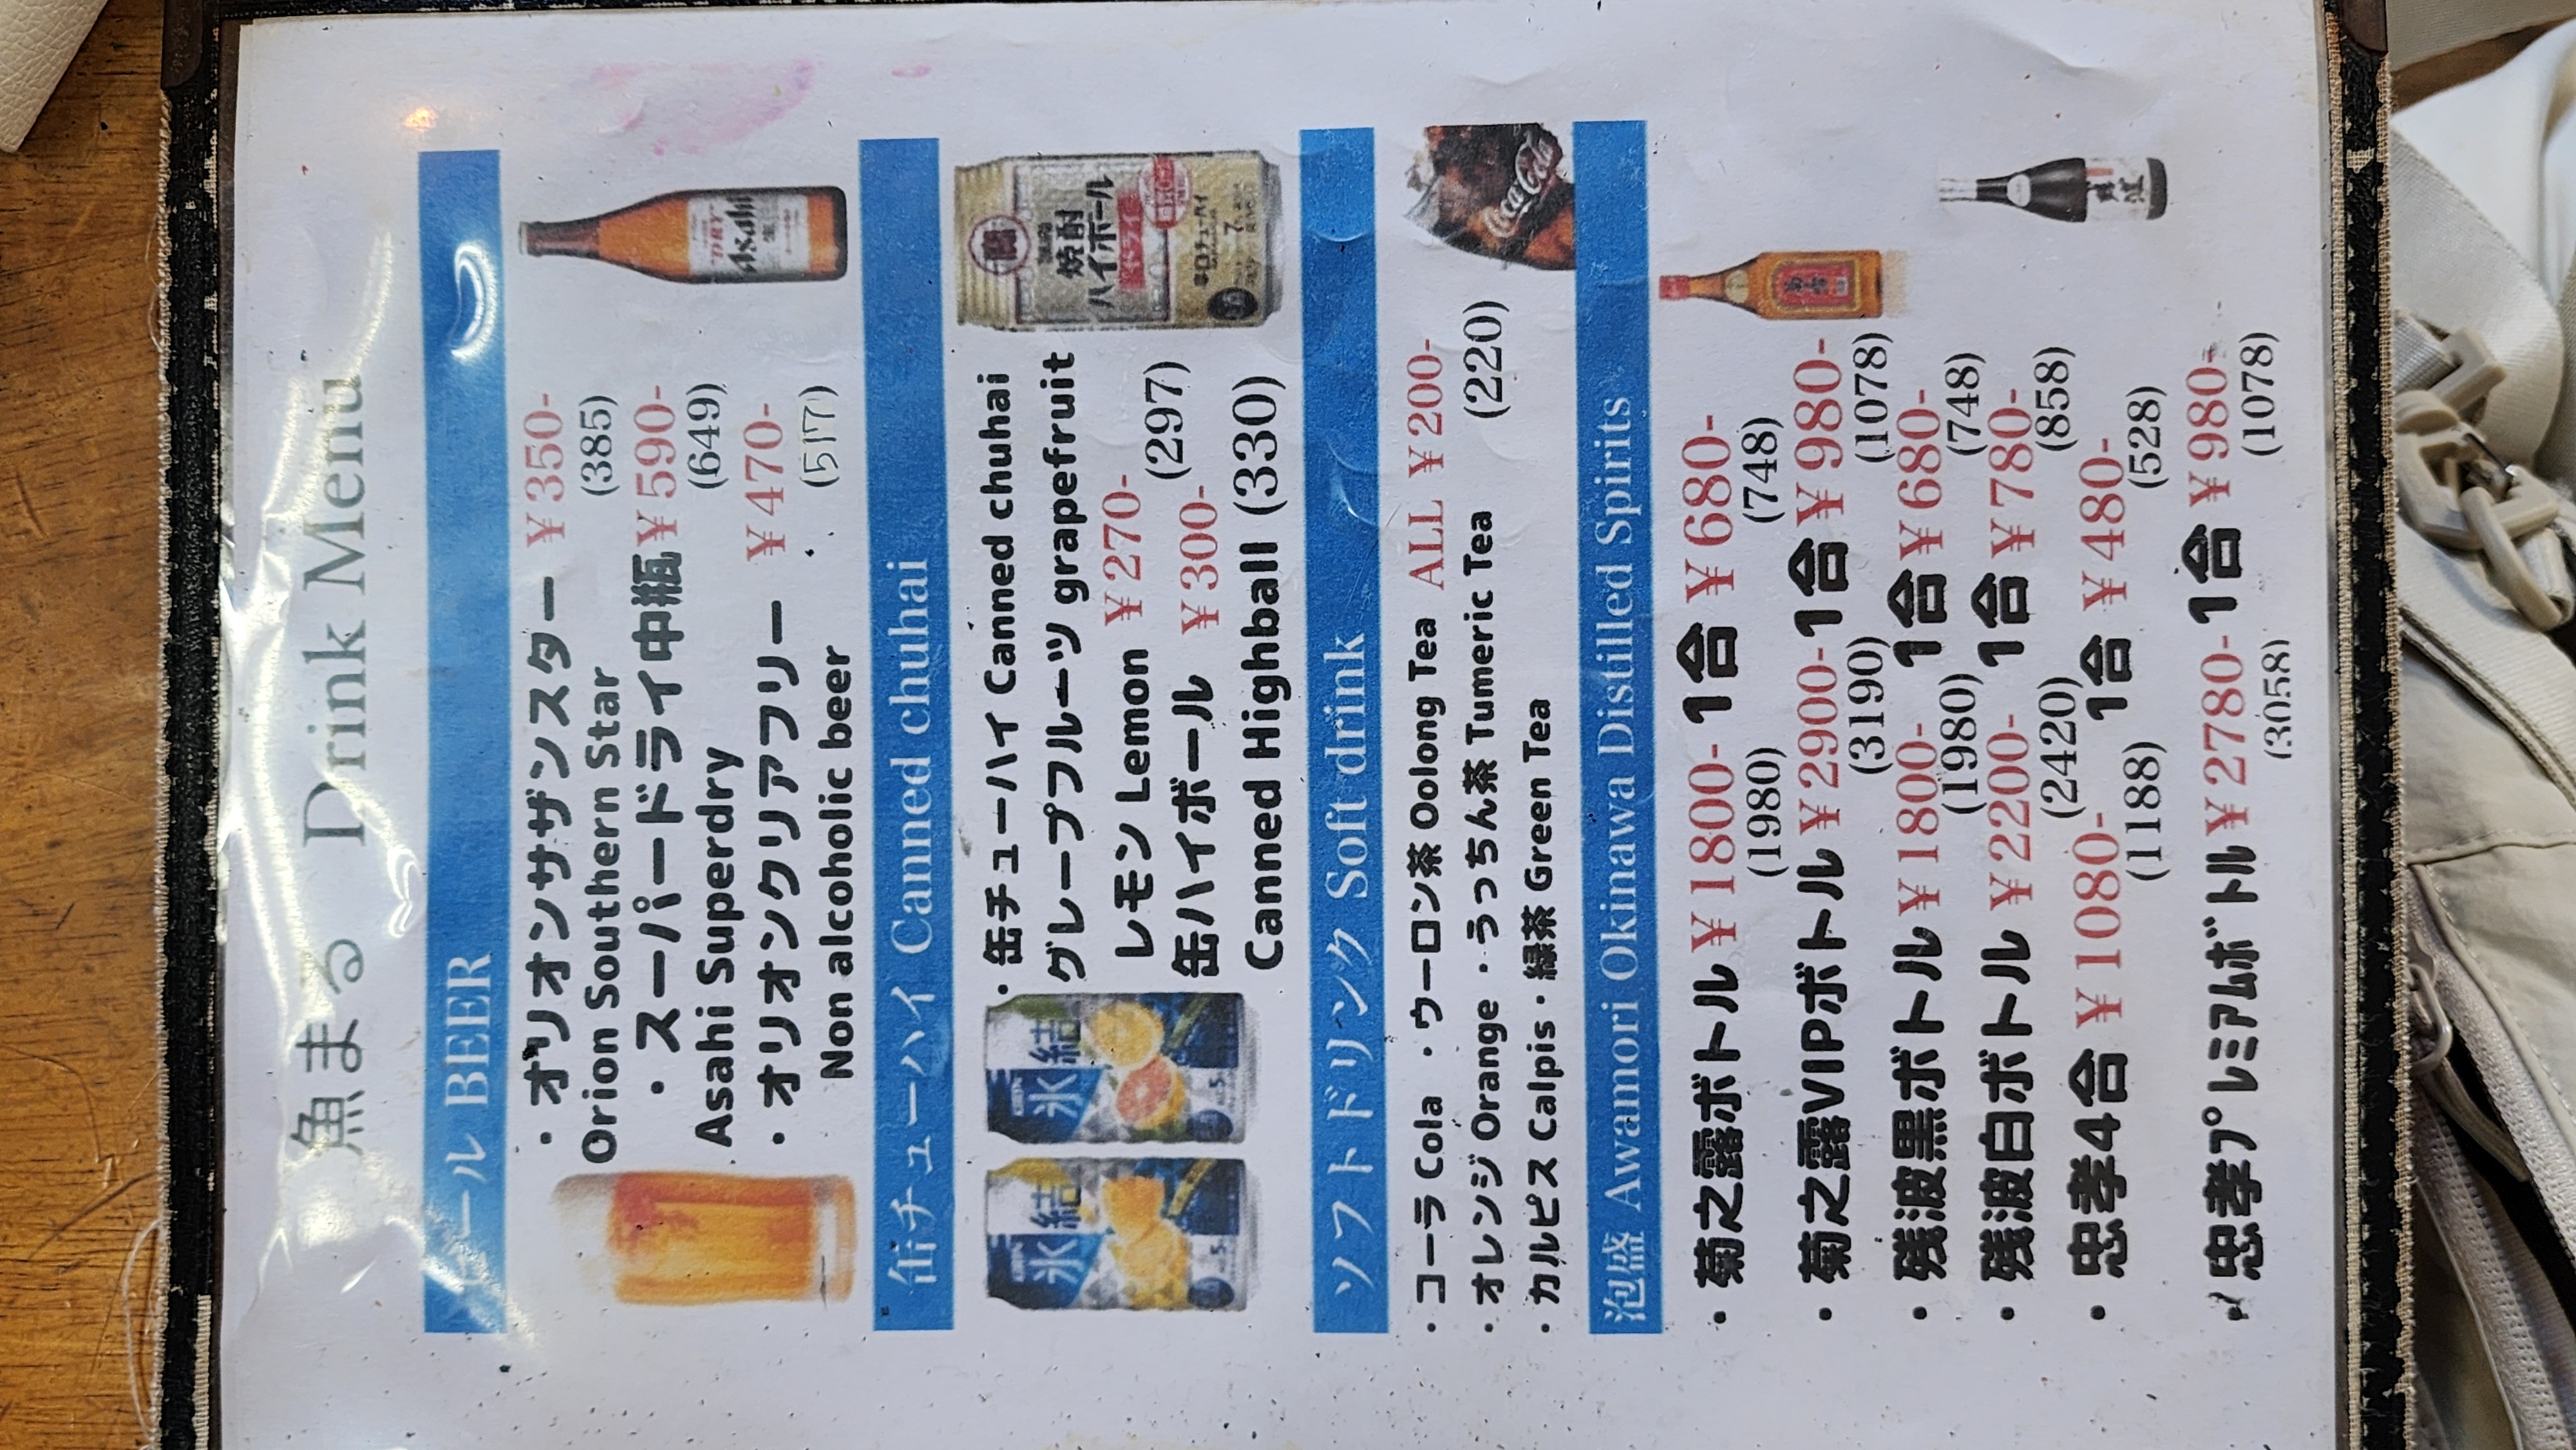 魚まる Drink Menu
ビール BEER
・オリオンサザンスター ¥350-
Orion Southern Star (385)
・スーパードライ中瓶 ¥590-
Asahi Superdry (649)
・オリオンクリアフリー ¥470-
Non alcoholic beer (517)
DRY
Asahi
缶チューハイ Canned chuhai
・缶チューハイ Canned chuhai
グレープフルーツ grapefruit
レモン Lemon ¥270- (297)
缶ハイボール ¥300-
Canned Highball (330)
氷結
氷結
焼酎
ハイボール
ドライ
辛口チューハイ
ソフトドリンク Soft drink
・コーラ Cola ・ウーロン茶 Oolong Tea ALL ¥200-
・オレンジ Orange ・うっちん茶 Tumeric Tea (220)
・カルピス Calpis・緑茶 Green Tea
Coca-Cola
泡盛 Awamori Okinawa Distilled Spirits
・菊之露ボトル ¥1800- 1合 ¥680-
(1980) (748)
・菊之露VIPボトル ¥2900- 1合 ¥980-
(3190) (1078)
・残波黒ボトル ¥1800- 1合 ¥680-
(1980) (748)
・残波白ボトル ¥2200- 1合 ¥780-
(2420) (858)
・忠孝4合 ¥1080- 1合 ¥480-
(1188) (528)
忠孝プレミアムボトル ¥2780- 1合 ¥980-
(3058) (1078)